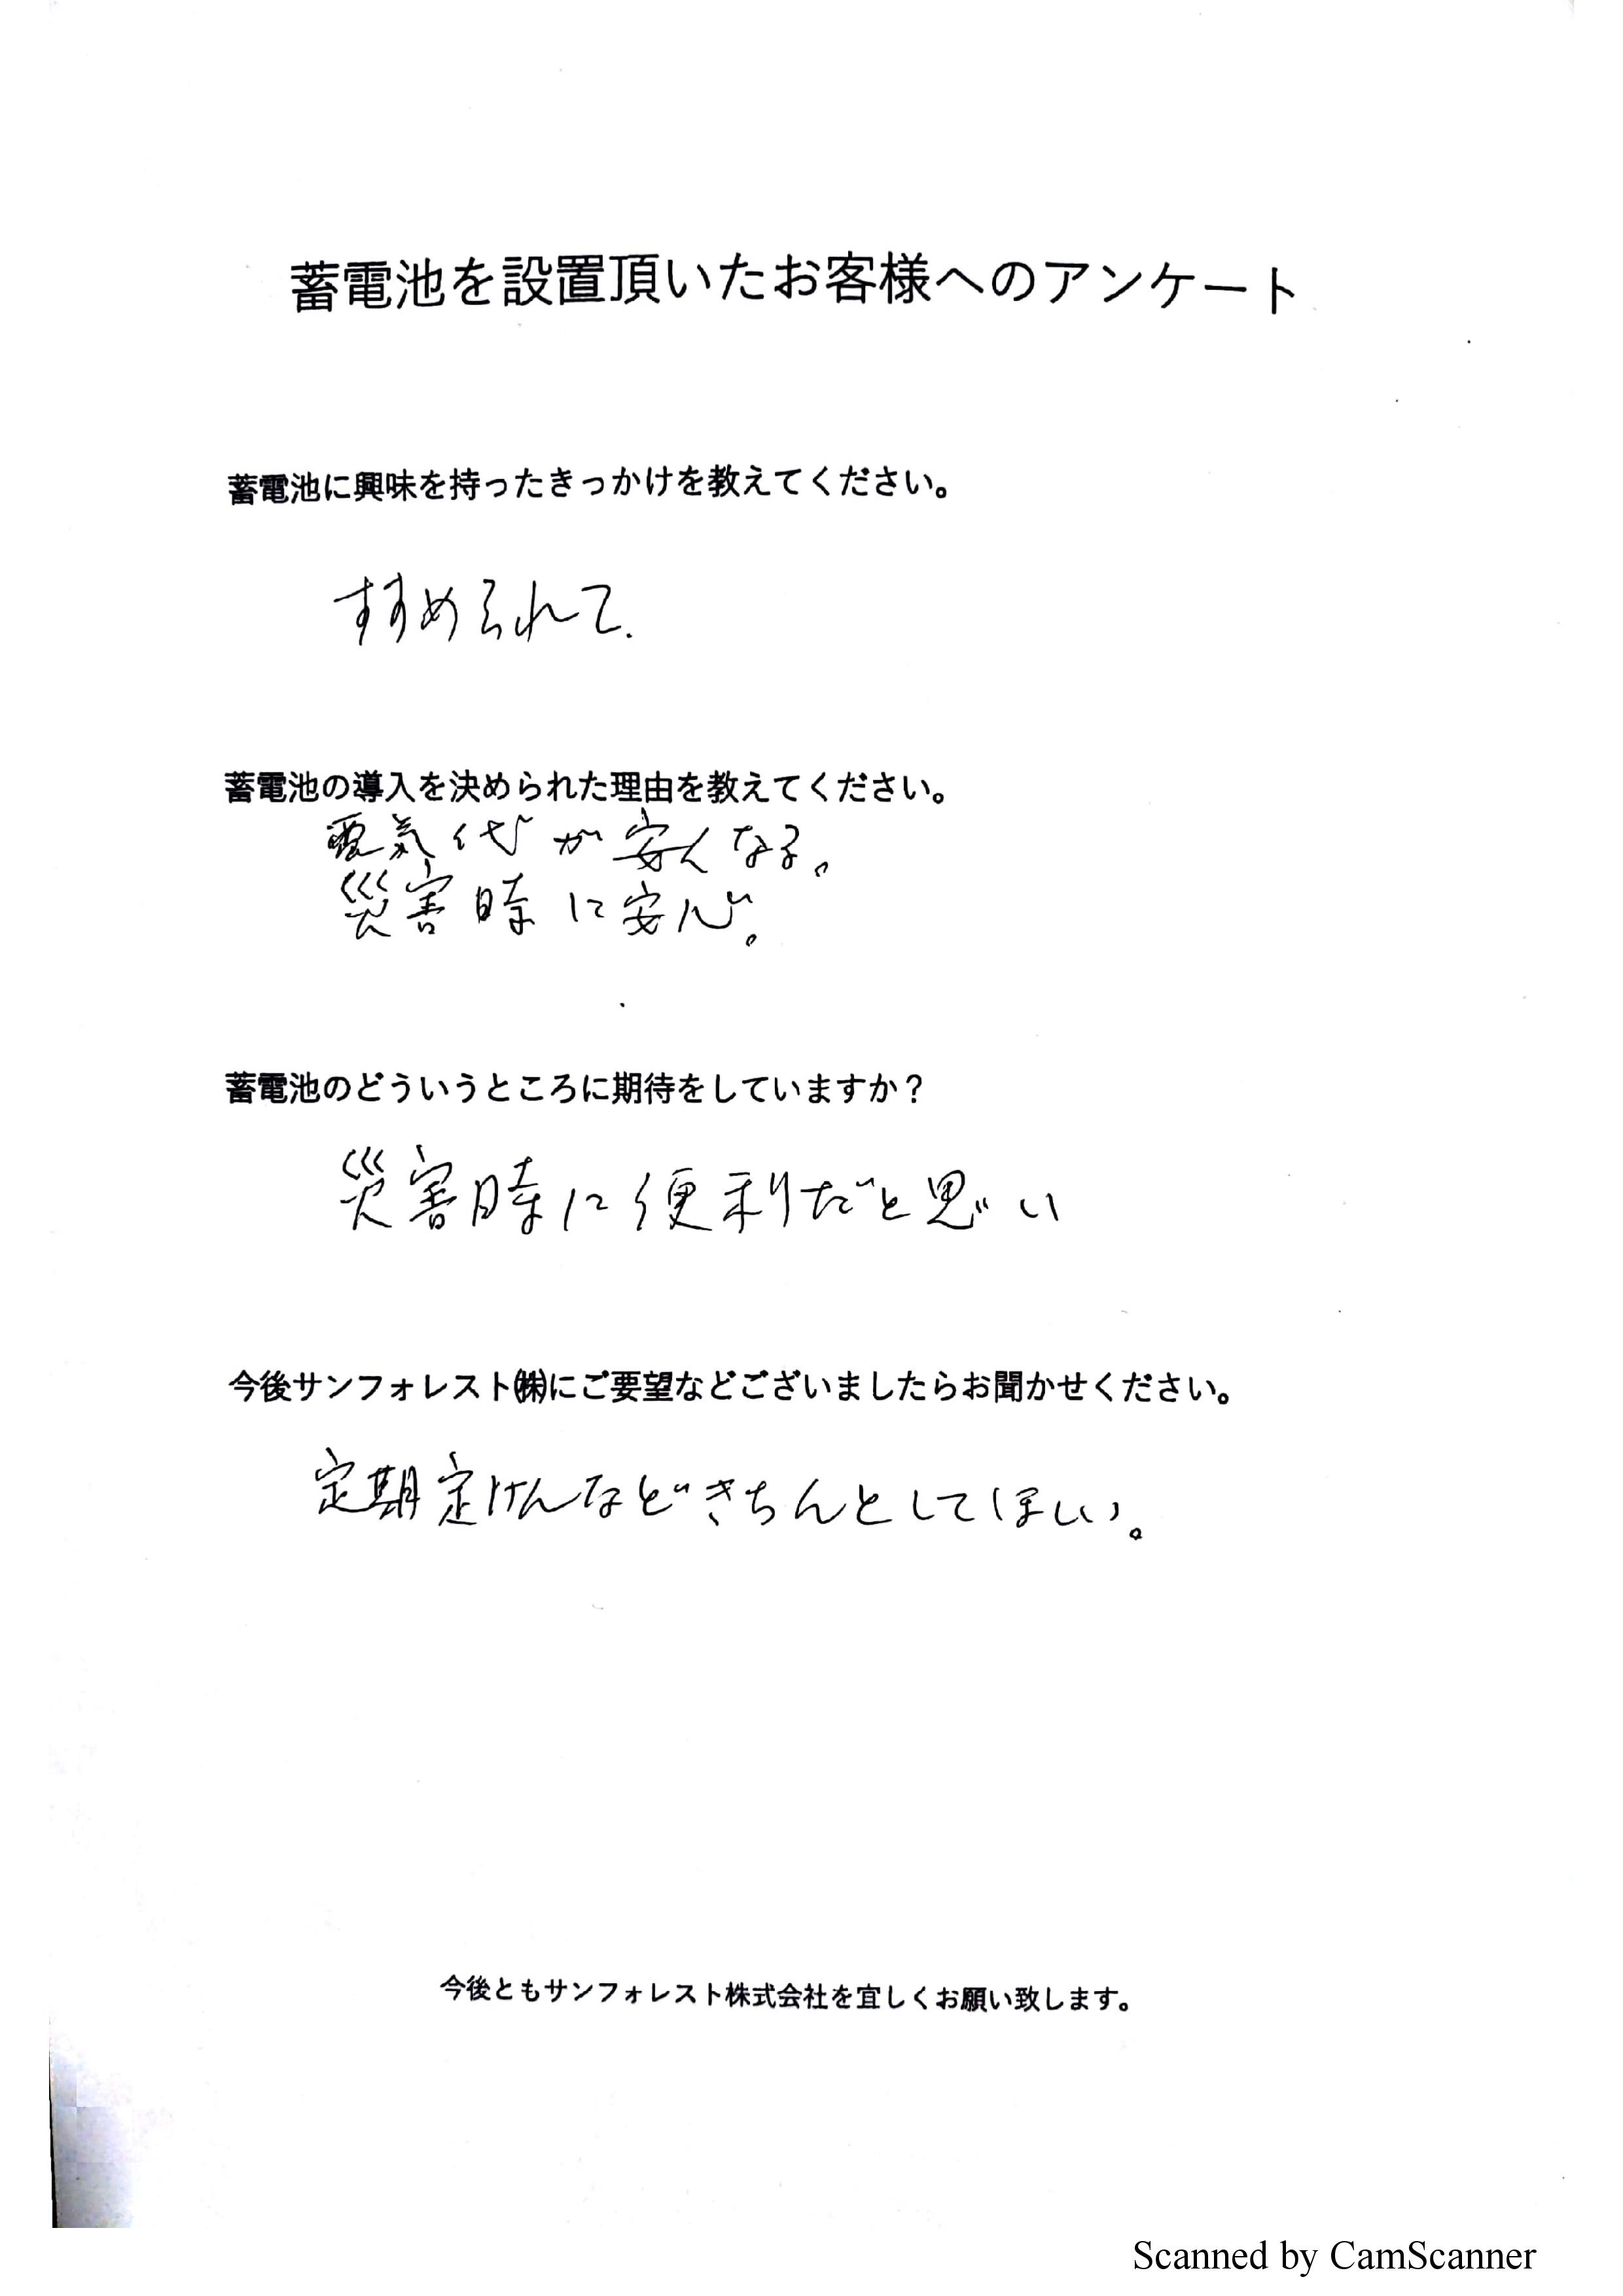 蓄電池を設置頂いたお客様へのアンケート
蓄電池に興味を持ったきっかけを教えてください。
すすめられて.
蓄電池の導入を決められた理由を教えてください。
電気代が安くなる。
災害時に安心。
蓄電池のどういうところに期待をしていますか？
災害時に便利だと思い
今後サンフォレスト㈱にご要望などございましたらお聞かせください。
定期定けんなどきちんとしてほしい。
今後ともサンフォレスト株式会社を宜しくお願い致します。
Scanned by CamScanner